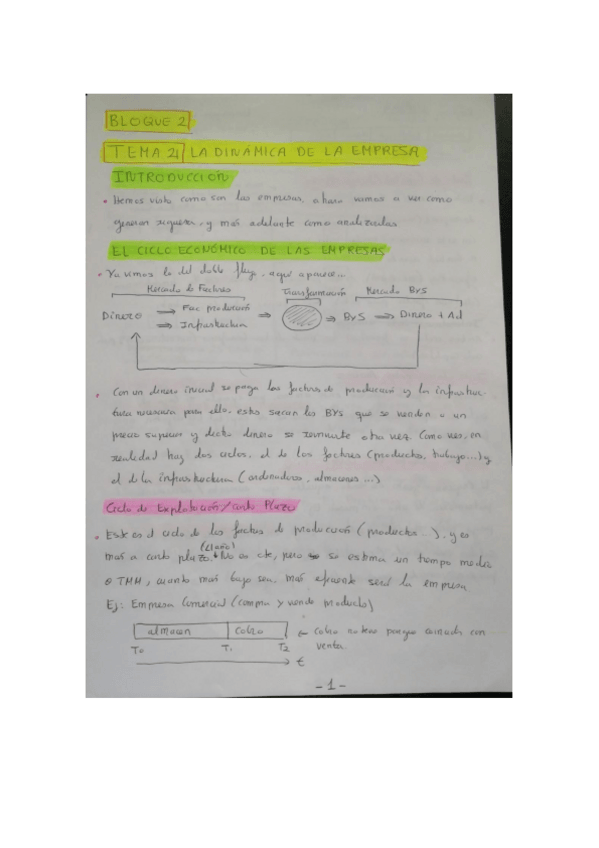 BLOQUE 2
TEMA 2 LA DINÁMICA DE LA EMPRESA
INTRODUCCIÓN
• Hemos visto como son las empresas, ahora vamos a ver como
generan riqueza, y más adelante como analizarlas
EL CICLO ECONÓMICO DE LAS EMPRESAS
• Ya vimos lo del doble flujo, aquí aparece...
Mercado de Factores Transformación Mercado BYS
Dinero ⇒ Fac producción ⇒ BYS ⇒ Dinero + Ad
⇒ Infraestructura
• Con un dinero inicial se paga los factores de producción y la infraestruc-
tura necesaria para ello, estos sacan los BYS que se venden a un
precio superior y dicho dinero se reinvierte otra vez. Como veo, en
realidad hay dos ciclos, el de los factores (productos, trabajo...) y
el de la infraestructura (ordenadores, almacenes...)
Ciclo de Explotación/corto Plazo
• Este es el ciclo de los factores de producción (productos...), y es
(<1 año)
más a corto plazo. No es cte, pero se estima un tiempo medio
o TMM, cuanto más bajo sea, más eficiente será la empresa
Ej: Empresa Comercial (compra y vende producto)
almacen cobro ← Cobro no tiene porque coincidir con
T0 T1 T2 venta
t
-1-